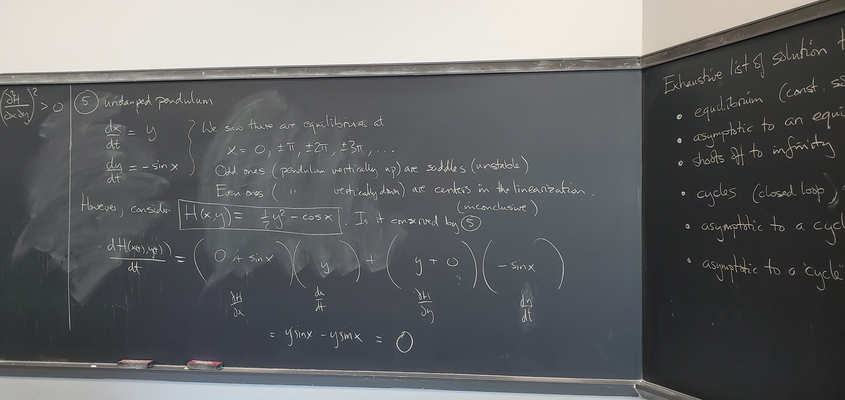 (∂²H/∂x∂y)² > 0
⑤ undamped pendulum
dx/dt = y
dy/dt = -sin x
We saw there are equilibria at
x = 0, ±π, ±2π, ±3π, ...
Odd ones (pendulum vertically up) are saddles (unstable)
Even ones ( " vertically down) are centers in the linearization.
(inconclusive)
However, consider H(x,y) = ½y² - cos x. Is it conserved by ⑤
dH(x(t),y(t))/dt = (0 + sin x)(y) + (y + 0)(-sin x)
∂H/∂x dx/dt ∂H/∂y dy/dt
= y sin x - y sin x = 0
Exhaustive list of solution
• equilibrium (const.
• asymptotic to an equi
• shoots off to infinity
• cycles (closed loop)
• asymptotic to a cycl
• asymptotic to a "cycle"